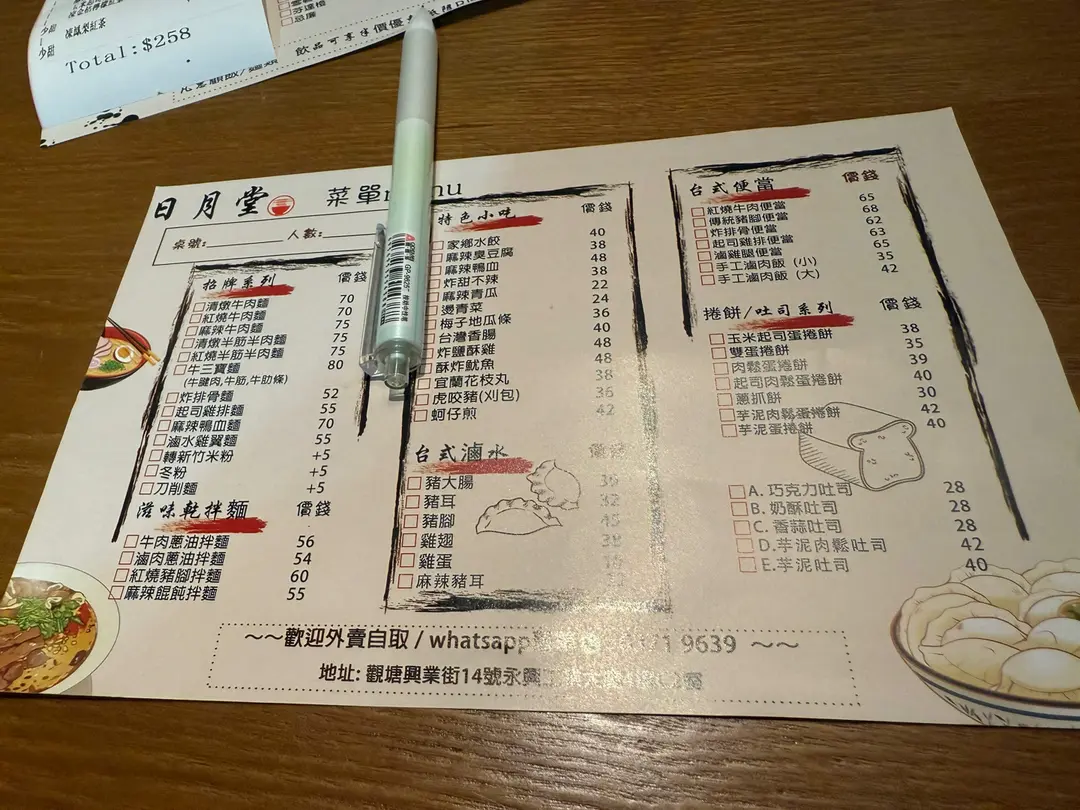 少甜 凍鳳梨紅茶
少甜
Total:$258
芬達橙
忌廉
飲品可享受價優
日月堂
菜單menu
桌號:
人數:
招牌系列 價錢
清燉牛肉麵 70
紅燒牛肉麵 70
麻辣牛肉麵 75
清燉半筋半肉麵 75
紅燒半筋半肉麵 75
牛三寶麵 80
(牛腱肉,牛筋,牛肋條)
炸排骨麵 52
起司雞排麵 55
麻辣鴨血麵 70
滷水雞翼麵 55
轉新竹米粉 +5
冬粉 +5
刀削麵 +5
滋味乾拌麵 價錢
牛肉蔥油拌麵 56
滷肉蔥油拌麵 54
紅燒豬腳拌麵 60
麻辣餛飩拌麵 55
特色小吃 價錢
家鄉水餃 40
麻辣臭豆腐 38
麻辣鴨血 48
炸甜不辣 38
麻辣青瓜 22
燙青菜 24
梅子地瓜條 36
台灣香腸 40
炸鹽酥雞 48
酥炸魷魚 48
宜蘭花枝丸 38
虎咬豬(刈包) 36
蚵仔煎 42
台式滷水
豬大腸
豬耳
豬腳
雞翅
雞蛋
麻辣豬耳
台式便當 價錢
紅燒牛肉便當 65
傳統豬腳便當 68
炸排骨便當 62
起司雞排便當 63
滷雞腿便當 65
手工滷肉飯 (小) 35
手工滷肉飯 (大) 42
捲餅/吐司系列 價錢
玉米起司蛋捲餅 38
雙蛋捲餅 35
肉鬆蛋捲餅 39
起司肉鬆蛋捲餅 40
蔥抓餅 30
芋泥肉鬆蛋捲餅 42
芋泥蛋捲餅 40
A. 巧克力吐司 28
B. 奶酥吐司 28
C. 香蒜吐司 28
D.芋泥肉鬆吐司 42
E.芋泥吐司 40
~~歡迎外賣自取 / whatsapp 9639 ~~
地址: 觀塘興業街14號永興